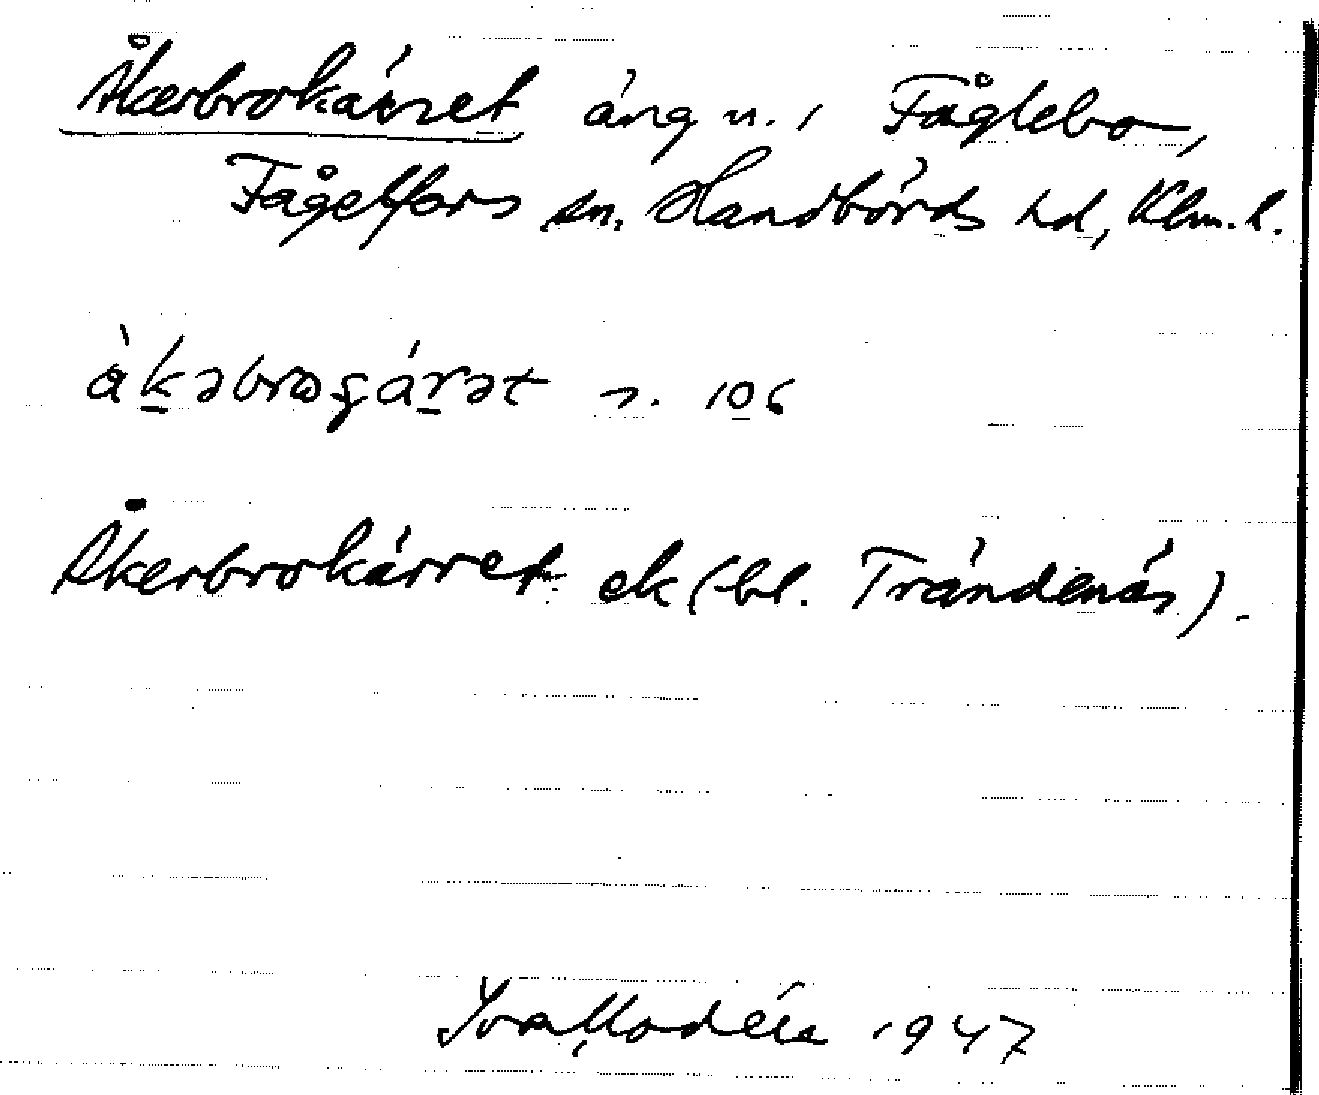 Åkerbrokärret äng n. i Fåglebo,
Fågelfors sn, Handbörds hd, Klm. l.
àkəbrɷçárət n. 106
Åkerbrokärret ek (bl. Trändenäs).
Ivar Modéer 1947